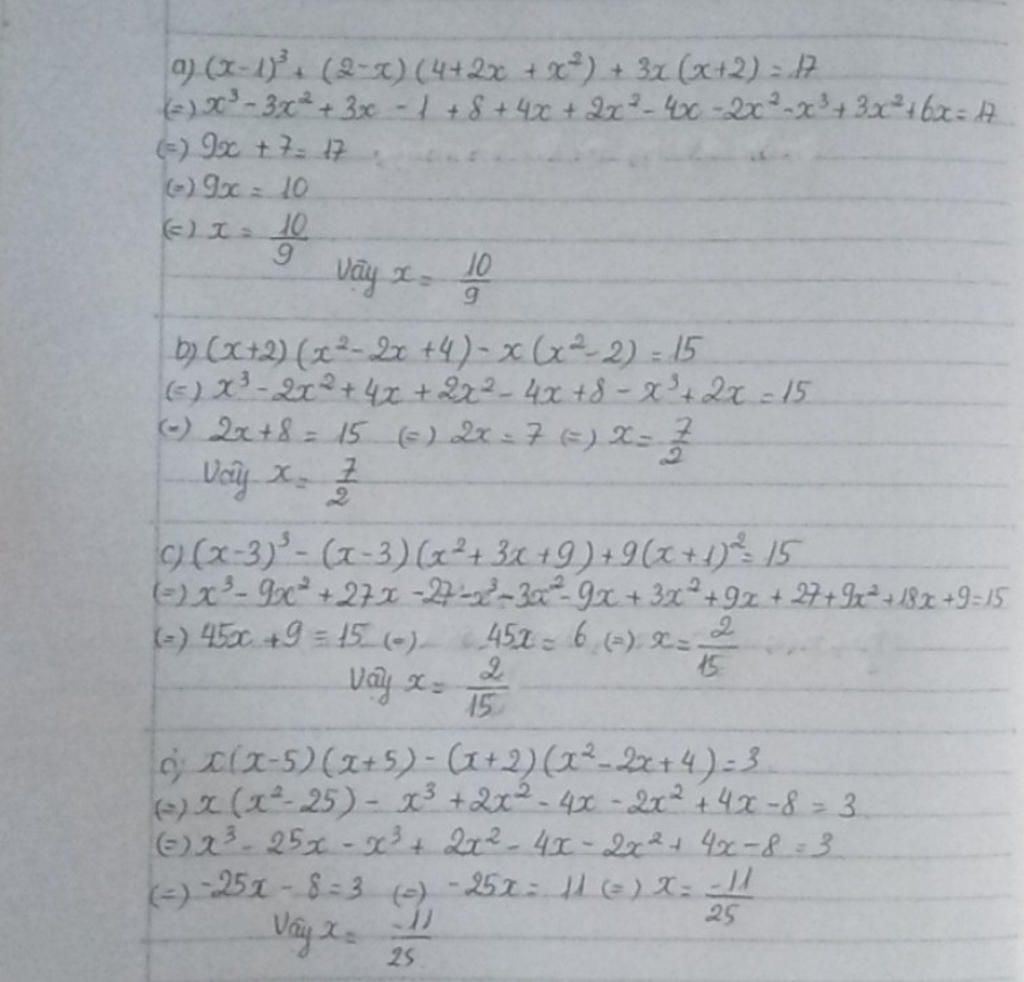 a) (x-1)³ + (2-x)(4+2x+x²) + 3x(x+2) = 17
(=) x³ - 3x² + 3x - 1 + 8 + 4x + 2x² - 4x - 2x² - x³ + 3x² + 6x = 17
(=) 9x + 7 = 17
(=) 9x = 10
(=) x = 10/9
Vậy x = 10/9
b) (x+2)(x²-2x+4) - x(x²-2) = 15
(=) x³ - 2x² + 4x + 2x² - 4x + 8 - x³ + 2x = 15
(=) 2x + 8 = 15 (=) 2x = 7 (=) x = 7/2
Vậy x = 7/2
c) (x-3)³ - (x-3)(x²+3x+9) + 9(x+1)² = 15
(=) x³ - 9x² + 27x - 27 - x³ - 3x² - 9x + 3x² + 9x + 27 + 9x² + 18x + 9 = 15
(=) 45x + 9 = 15 (=) 45x = 6 (=) x = 2/15
Vậy x = 2/15
x(x-5)(x+5) - (x+2)(x²-2x+4) = 3
(=) x(x²-25) - x³ + 2x² - 4x - 2x² + 4x - 8 = 3
(=) x³ - 25x - x³ + 2x² - 4x - 2x² + 4x - 8 = 3
(=) -25x - 8 = 3 (=) -25x = 11 (=) x = -11/25
Vậy x = -11/25